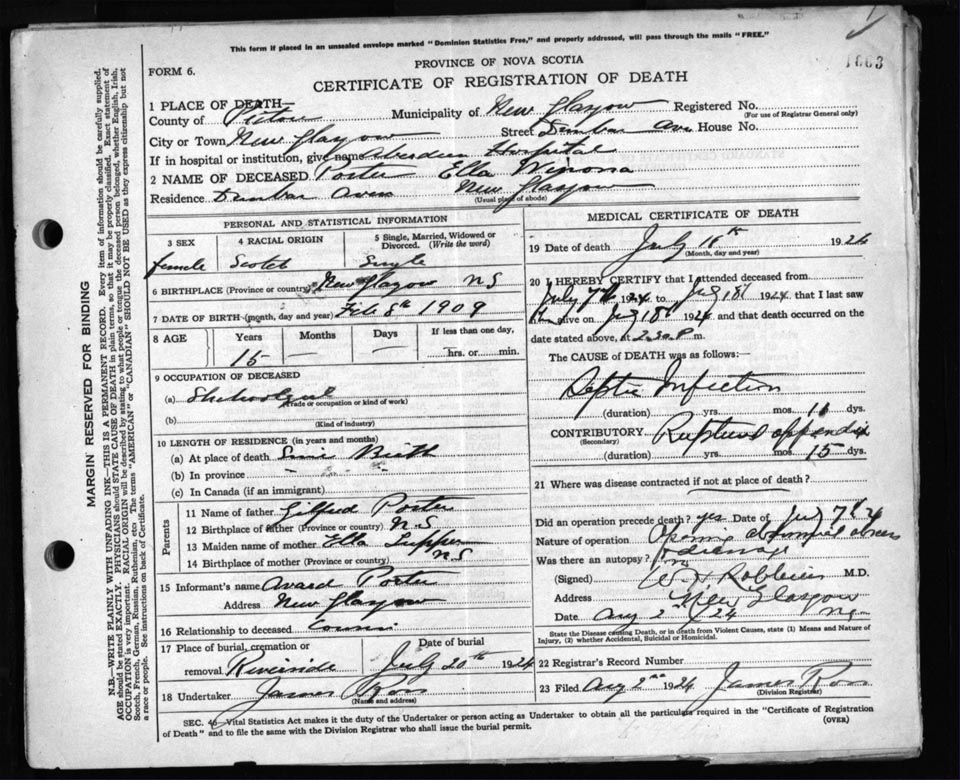 This form if placed in an unsealed envelope marked "Dominion Statistics Free," and properly addressed, will pass through the mails "FREE."
1663
PROVINCE OF NOVA SCOTIA
FORM 6.
CERTIFICATE OF REGISTRATION OF DEATH
1 PLACE OF DEATH—
County of Pictou Municipality of New Glasgow Registered No.
(For use of Registrar General only)
City or Town New Glasgow Street Dunbar Ave House No.
If in hospital or institution, give name Aberdeen Hospital
2 NAME OF DECEASED Porter Ella Winona
Residence Dunbar Avenue New Glasgow
(Usual place of abode)
PERSONAL AND STATISTICAL INFORMATION
3 SEX 4 RACIAL ORIGIN 5 Single, Married, Widowed or Divorced. (Write the word)
female Scotch Single
6 BIRTHPLACE (Province or country) New Glasgow N S
7 DATE OF BIRTH (month, day and year) Feb 8th 1909
8 AGE Years Months Days If less than one day,
15 — — hrs. or min.
9 OCCUPATION OF DECEASED
(a) Schoolgirl
(Trade or occupation or kind of work)
(b)
(Kind of industry)
10 LENGTH OF RESIDENCE (in years and months)
(a) At place of death Since Birth
(b) In province
(c) In Canada (if an immigrant)
Parents
11 Name of father Gilford Porter
12 Birthplace of father (Province or country) N.S
13 Maiden name of mother Ella Tupper
14 Birthplace of mother (Province or country) N S
15 Informant's name Avard Porter
Address New Glasgow
16 Relationship to deceased Cousin
17 Place of burial, cremation or removal Riverside Date of burial July 20th 1924
18 Undertaker James Ross
(Name and address)
MEDICAL CERTIFICATE OF DEATH
19 Date of death July 18th 1924
(Month, day and year)
20 I HEREBY CERTIFY that I attended deceased from
July 7th 1924 to July 18th 1924 that I last saw
alive on July 18th 1924 and that death occurred on the
date stated above, at 2.30 P m.
The CAUSE OF DEATH was as follows:—
Septic Infection
(duration) yrs. mos. 11 dys.
CONTRIBUTORY Ruptured appendix
(Secondary)
(duration) yrs. mos. 15 dys.
21 Where was disease contracted if not at place of death?
Did an operation precede death? yes Date of July 7th 24
Nature of operation Opening abdominal abscess
& drainage
Was there an autopsy? no
(Signed) Robbins M.D.
Address New Glasgow
Date Aug 2nd 24 N.S.
State the Disease causing Death, or in death from Violent Causes, state (1) Means and Nature of Injury, (2) whether Accidental, Suicidal or Homicidal.
22 Registrar's Record Number
23 Filed Aug 2nd 1924 James Ross
(Division Registrar)
SEC. 46—Vital Statistics Act makes it the duty of the Undertaker or person acting as Undertaker to obtain all the particulars required in the "Certificate of Registration
of Death" and to file the same with the Division Registrar who shall issue the burial permit.
(OVER)
MARGIN RESERVED FOR BINDING
N.B.—WRITE PLAINLY WITH UNFADING INK—THIS IS A PERMANENT RECORD. Every item of information should be carefully supplied.
AGE should be stated EXACTLY. PHYSICIANS should STATE CAUSE OF DEATH in plain terms, so that it may be properly classified. Exact statement of
OCCUPATION is very important. RACIAL ORIGIN will be described by stating to what people or tongue the deceased person belonged, whether English, Irish,
Scotch, French, German, Russian, Ruthenian, etc. The terms "AMERICAN" or "CANADIAN" SHOULD NOT BE USED as they express citizenship but not
a race or people. See instructions on back of Certificate.